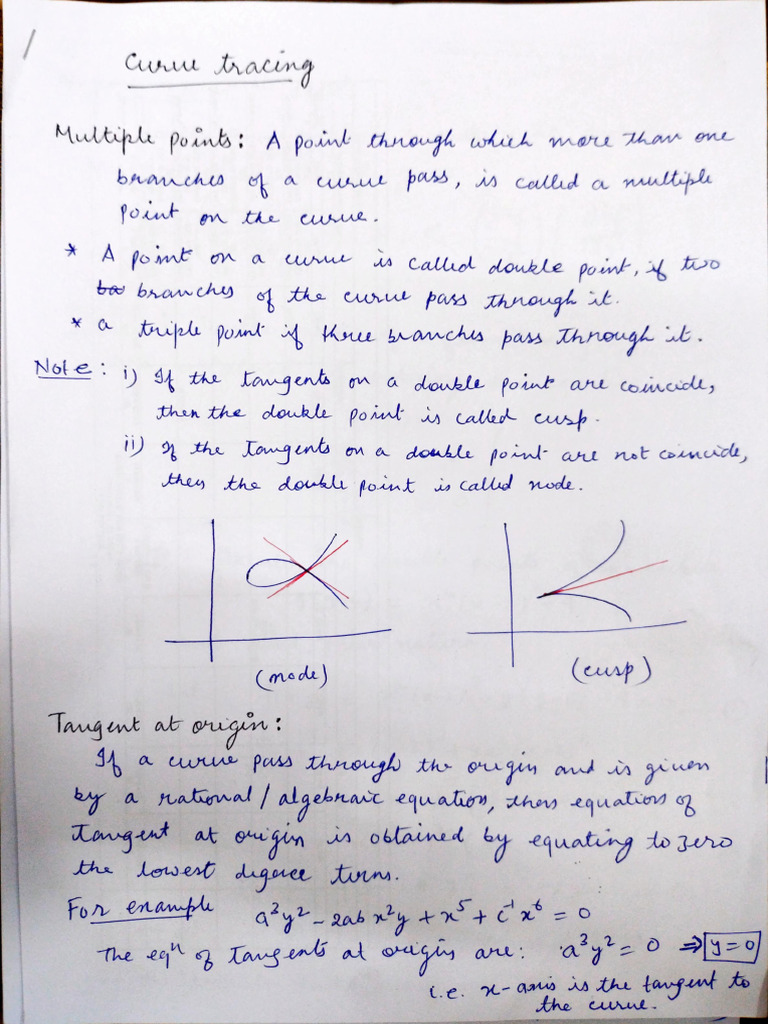 1
Curve tracing
Multiple points: A point through which more than one
branches of a curve pass, is called a multiple
point on the curve.
* A point on a curve is called double point, if two
branches of the curve pass through it.
* a triple point if three branches pass through it.
Note: i) If the tangents on a double point are coincide,
then the double point is called cusp.
ii) If the tangents on a double point are not coincide,
then the double point is called node.
(node) (cusp)
Tangent at origin:
If a curve pass through the origin and is given
by a rational/algebraic equation, then equation of
tangent at origin is obtained by equating to zero
the lowest degree terms.
For example a³y² - 2ab x²y + x⁵ + c⁻¹x⁶ = 0
The eqⁿ of tangents at origin are: a³y² = 0 ⇒ y=0
i.e. x-axis is the tangent to
the curve.